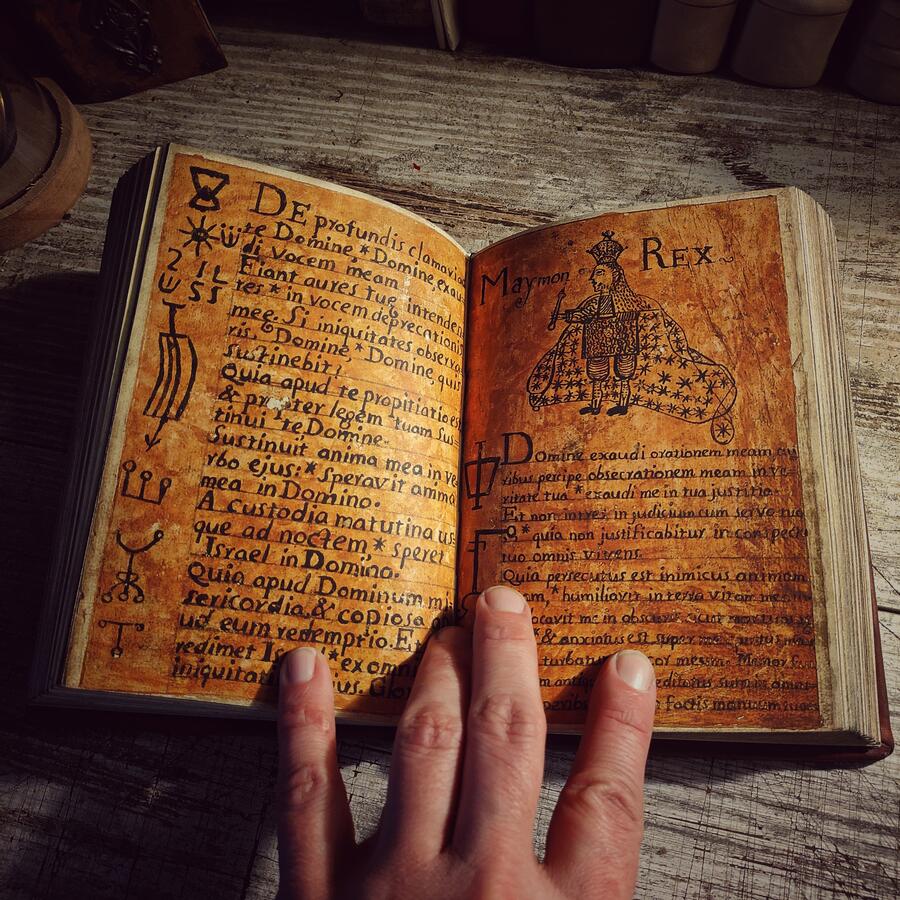 DE profundis clamavi
te Domine, * Domine, exau
di vocem meam
Fiant aures tuę intende
tes * in vocem deprecationis
meę. Si iniquitates observa
ris, Domine * Domine, quis
sustinebit?
Quia apud te propitiatio es
& propter legem tuam sus
tinui te Domine.
Sustinuit anima mea in ve
rbo ejus: * Speravit anima
mea in Domino.
A custodia matutina us
que ad noctem * speret
Israel in Domino.
Quia apud Dominum mi
sericordia, & copiosa
ud eum redemptio. Et
redimet * ex omni
iniquitati ius. Glor
Maymon REX
Domine exaudi orationem meam au
ribus percipe obsecrationem meam in ve
ritate tua * exaudi me in tua justitia.
Et non intres in judicium cum servo tuo
* quia non justificabitur in conspectu
tuo omnis vivens.
Quia persecutus est inimicus animam
* humiliavit in terra vitam meam
me in obscuris
& anxiatus est super me
turbatum cor meum. Memor fui
factis manuum tuarum